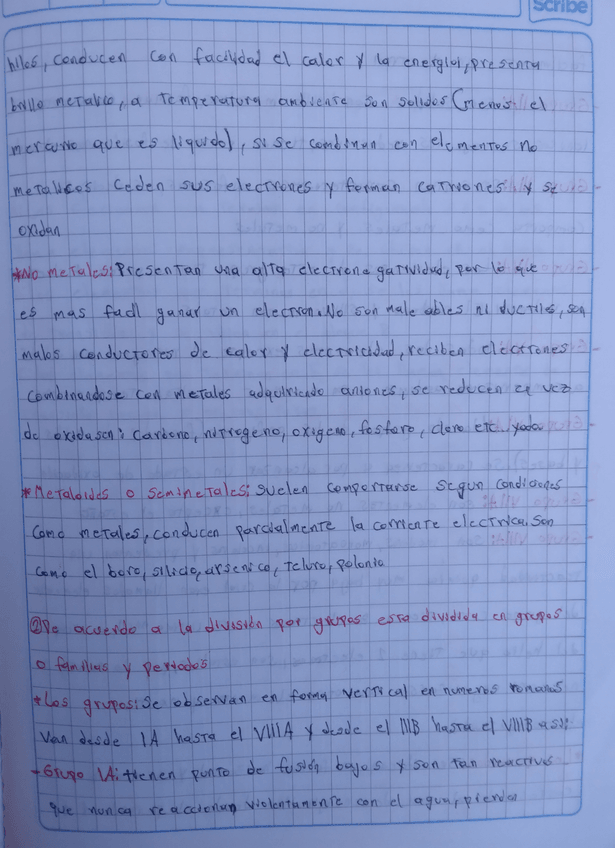 Scribe
hiles, conducen con facilidad el calor y la energia, presenta
brillo metalico, a temperatura ambiente son solidos (menos el
mercurio que es liquido), si se combinan con elementos no
metalicos ceden sus electrones y forman cationes y se
oxidan
*No metales: Presentan una alta electrone gatividad, por lo que
es mas facil ganar un electron. No son male ables ni ductiles, son
malos conductores de calor y electricidad, reciben electrones
combinandose con metales adquiriendo aniones, se reducen en vez
de oxidasen: carbono, nitrogeno, oxigeno, fosforo, cloro etc. yodo
*Metaloides o semimetales: suelen comportarse segun condiciones
como metales, conducen parcialmente la corriente electrica. Son
como el boro, silicio, arsenico, teluro, polonio
②De acuerdo a la division por grupos esta dividida en grupos
o familias y periodos
*Los grupos: Se observan en forma vertical en numeros romanos
Van desde IA hasta el VIIIA y desde el IIIB hasta el VIIIB asi:
-Grupo IA: tienen punto de fusión bajos y son tan reactivos
que nunca reaccionan violentamente con el agua, pierden